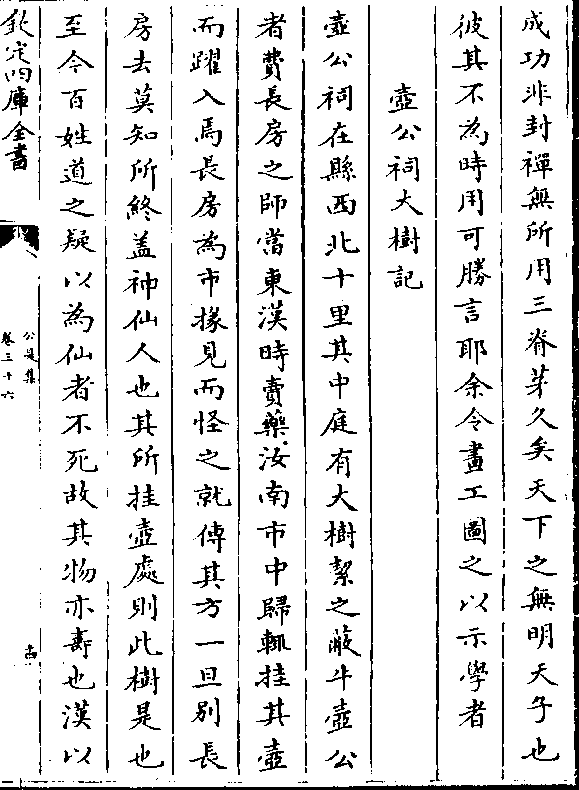 成功非封禪無所用三脊茅久矣天下之無明天子也
彼其不為時用可勝言耶余令畫工圖之以示學者
壺公祠大樹記
壺公祠在縣西北十里其中庭有大樹絜之蔽牛壺公
者費長房之師當東漢時賣藥汝南市中歸輒挂其壺
而躍入焉長房為市掾見而怪之就傳其方一旦別長
房去莫知所終盖神仙人也其所挂壺處則此樹是也
至今百姓道之疑以為仙者不死故其物亦壽也漢以
欽定四庫全書
公是集
卷三十六